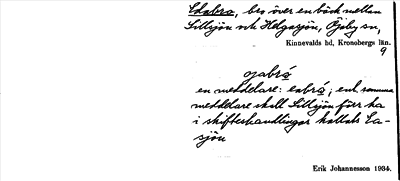 Ekabro, bro över en bäck mellan
Lillsjön och Helgasjön, Öjaby sn,
Kinnevalds hd, Kronobergs län.
9
en meddelare: eabrá; enl. samma
meddelare skall Lillsjön förr ha
i skifteshandlingar kallats Ea-
sjön
Erik Johannesson 1934.